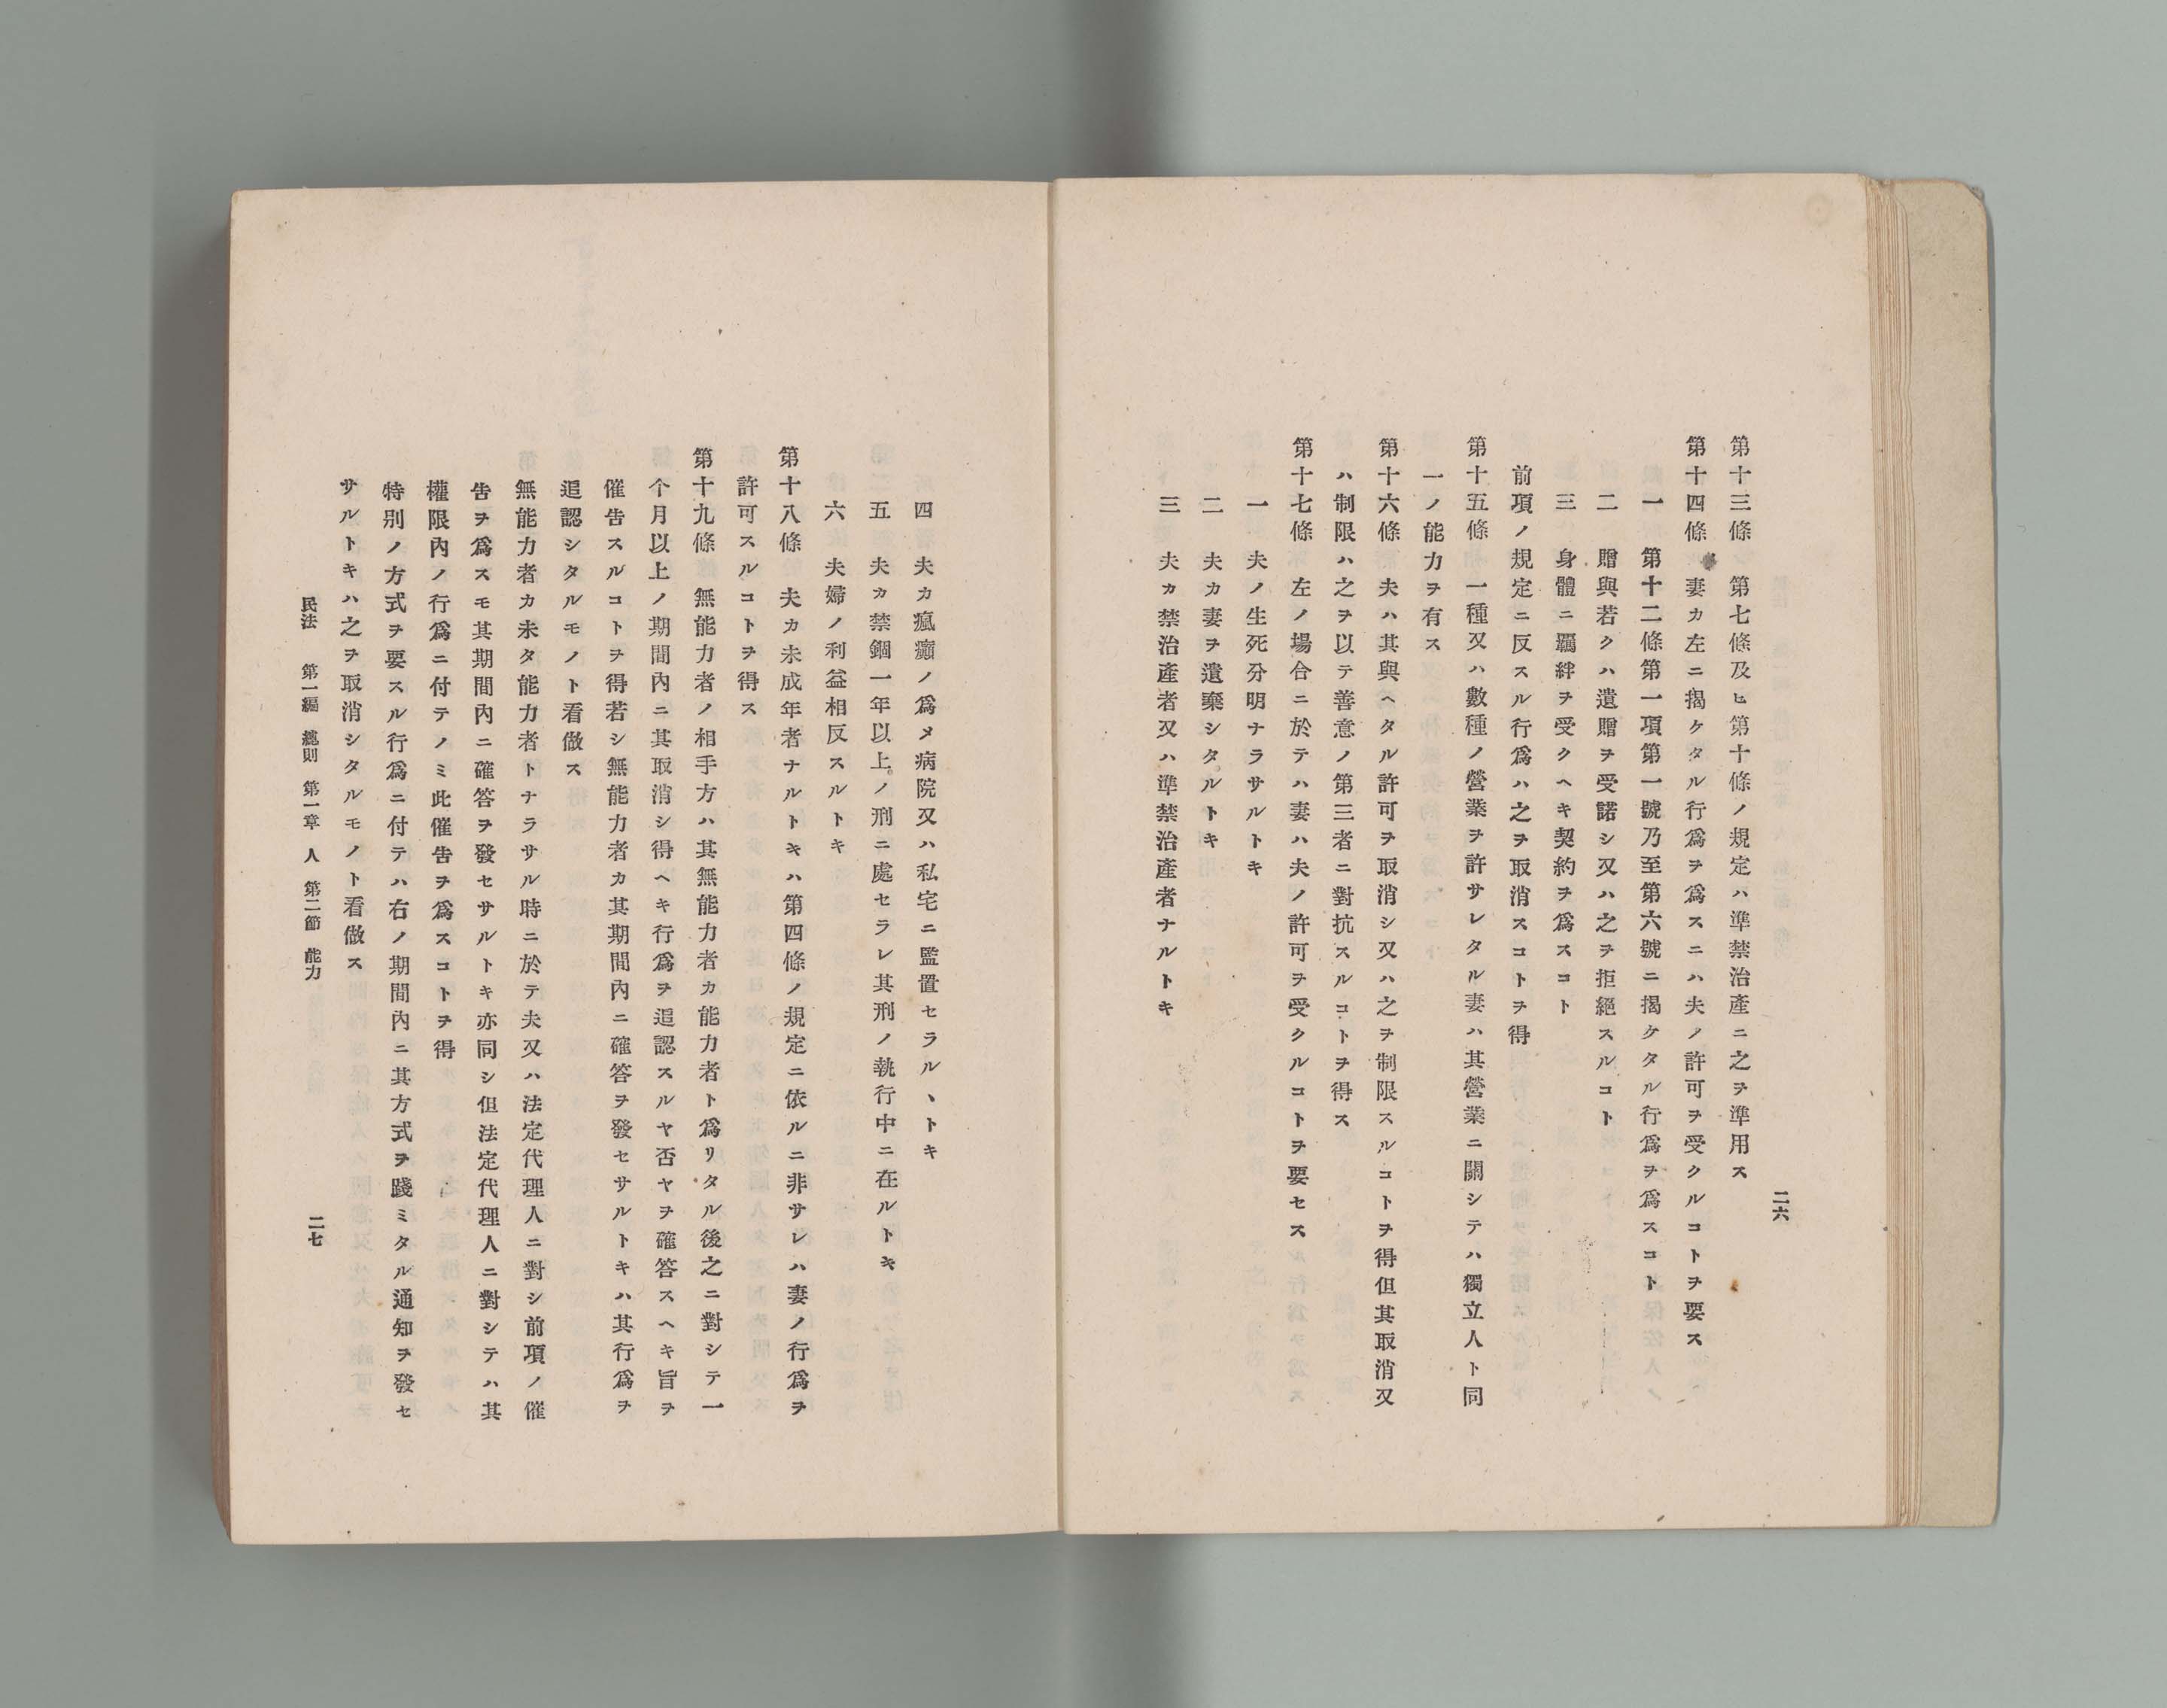 二六
第十三條　第七條及ヒ第十條ノ規定ハ準禁治產ニ之ヲ準用ス
第十四條　妻カ左ニ揭ケタル行爲ヲ爲スニハ夫ノ許可ヲ受クルコトヲ要ス
一　第十二條第一項第一號乃至第六號ニ揭ケタル行爲ヲ爲スコト
二　贈與若クハ遺贈ヲ受諾シ又ハ之ヲ拒絕スルコト
三　身體ニ羈絆ヲ受クヘキ契約ヲ爲スコト
前項ノ規定ニ反スル行爲ハ之ヲ取消スコトヲ得
第十五條　一種又ハ數種ノ營業ヲ許サレタル妻ハ其營業ニ關シテハ獨立人ト同
一ノ能力ヲ有ス
第十六條　夫ハ其與ヘタル許可ヲ取消シ又ハ之ヲ制限スルコトヲ得但其取消又
ハ制限ハ之ヲ以テ善意ノ第三者ニ對抗スルコトヲ得ス
第十七條　左ノ場合ニ於テハ妻ハ夫ノ許可ヲ受クルコトヲ要セス
一　夫ノ生死分明ナラサルトキ
二　夫カ妻ヲ遺棄シタルトキ
三　夫カ禁治產者又ハ準禁治產者ナルトキ
四　夫カ瘋癲ノ爲メ病院又ハ私宅ニ監置セラルヽトキ
五　夫カ禁錮一年以上ノ刑ニ處セラレ其刑ノ執行中ニ在ルトキ
六　夫婦ノ利益相反スルトキ
第十八條　夫カ未成年者ナルトキハ第四條ノ規定ニ依ルニ非サレハ妻ノ行爲ヲ
許可スルコトヲ得ス
第十九條　無能力者ノ相手方ハ其無能力者カ能力者ト爲リタル後之ニ對シテ一
个月以上ノ期間內ニ其取消シ得ヘキ行爲ヲ追認スルヤ否ヤヲ確答スヘキ旨ヲ
催吿スルコトヲ得若シ無能力者カ其期間內ニ確答ヲ發セサルトキハ其行爲ヲ
追認シタルモノト看做ス
無能力者カ未タ能力者トナラサル時ニ於テ夫又ハ法定代理人ニ對シ前項ノ催
吿ヲ爲スモ其期間內ニ確答ヲ發セサルトキ亦同シ但法定代理人ニ對シテハ其
權限內ノ行爲ニ付テノミ此催吿ヲ爲スコトヲ得
特別ノ方式ヲ要スル行爲ニ付テハ右ノ期間內ニ其方式ヲ踐ミタル通知ヲ發セ
サルトキハ之ヲ取消シタルモノト看做ス
民法　第一編　總則　第一章　人　第二節　能力　二七